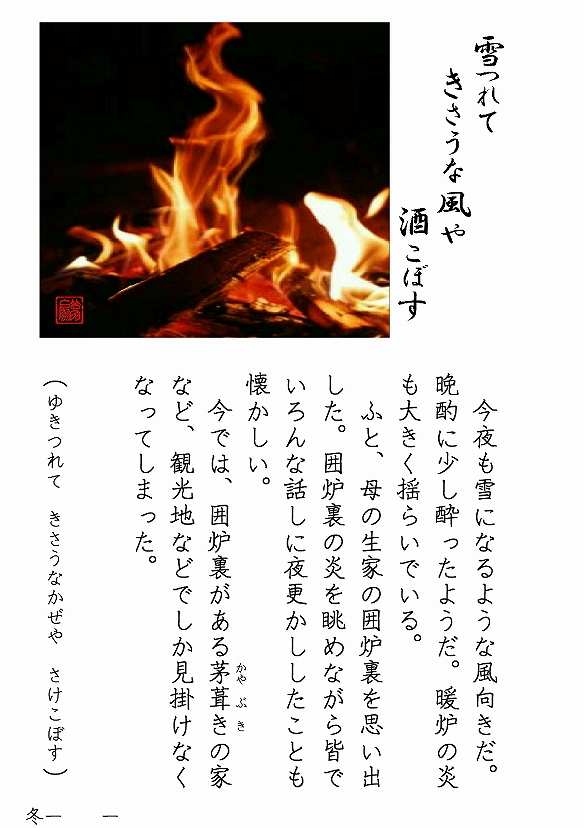 雪つれて
きさうな風や
酒こぼす
今夜も雪になるような風向きだ。
晩酌に少し酔ったようだ。暖炉の炎
も大きく揺らいでいる。
ふと、母の生家の囲炉裏を思い出
した。囲炉裏の炎を眺めながら皆で
いろんな話しに夜更かししたことも
懐かしい。
今では、囲炉裏がある茅葺きの家
かやぶき
など、観光地などでしか見掛けなく
なってしまった。
(ゆきつれて きさうなかぜや さけこぼす)
冬一 一